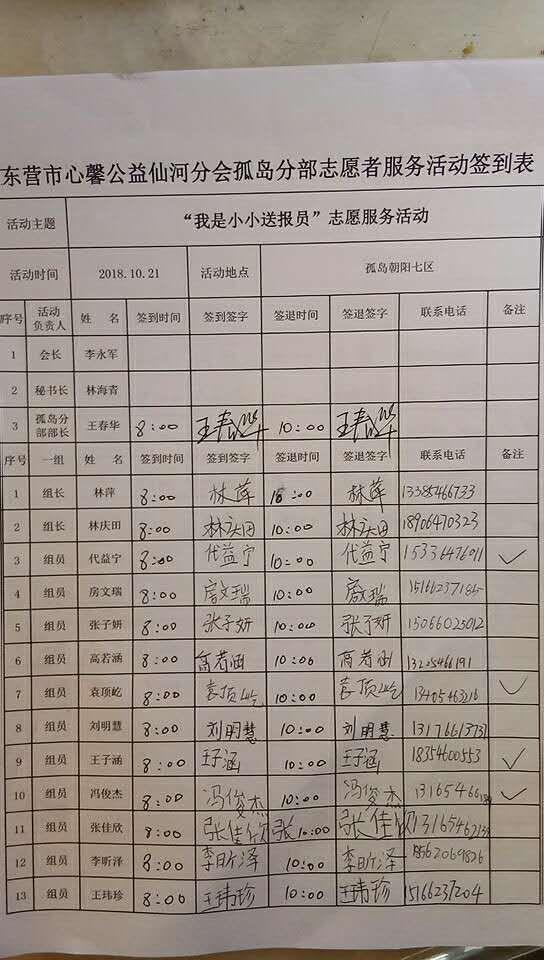 东营市心馨公益仙河分会孤岛分部志愿者服务活动签到表
活动主题 “我是小小送报员”志愿服务活动
活动时间 2018.10.21 活动地点 孤岛朝阳七区
序号 活动负责人 姓 名 签到时间 签到签字 签退时间 签退签字 联系电话 备注
1 会长 李永军
2 秘书长 林海青
3 孤岛分部部长 王春华 8:00 王春晔 10:00 王春晔
序号 一组 姓 名 签到时间 签到签字 签退时间 签退签字 联系电话 备注
1 组长 林萍 8:00 林萍 10:00 林萍 13385466733
2 组长 林庆田 8:00 林庆田 10:00 林庆田 18906470323
3 组员 代益宁 8:00 代益宁 10:00 代益宁 15336476011 ✓
4 组员 房文瑞 8:00 房文瑞 10:00 房文瑞 15166237185
5 组员 张子妍 8:00 张子妍 10:00 张子妍 15066025012
6 组员 高若涵 8:00 高若涵 10:00 高若涵
7 组员 袁顶屹 8:00 袁顶屹 10:00 袁顶屹 13405463216 ✓
8 组员 刘明慧 8:00 刘明慧 10:00 刘明慧 13176613731
9 组员 王子涵 8:00 王子涵 10:00 王子涵 18354600553 ✓
10 组员 冯俊杰 8:00 冯俊杰 10:00 冯俊杰 ✓
11 组员 张佳欣 8:00 张佳欣 张 10:00 张佳欣
12 组员 李昕泽 8:00 李昕泽 10:00 李昕泽 18562069826
13 组员 王玮珍 8:00 王玮珍 10:00 王玮珍 15166237204